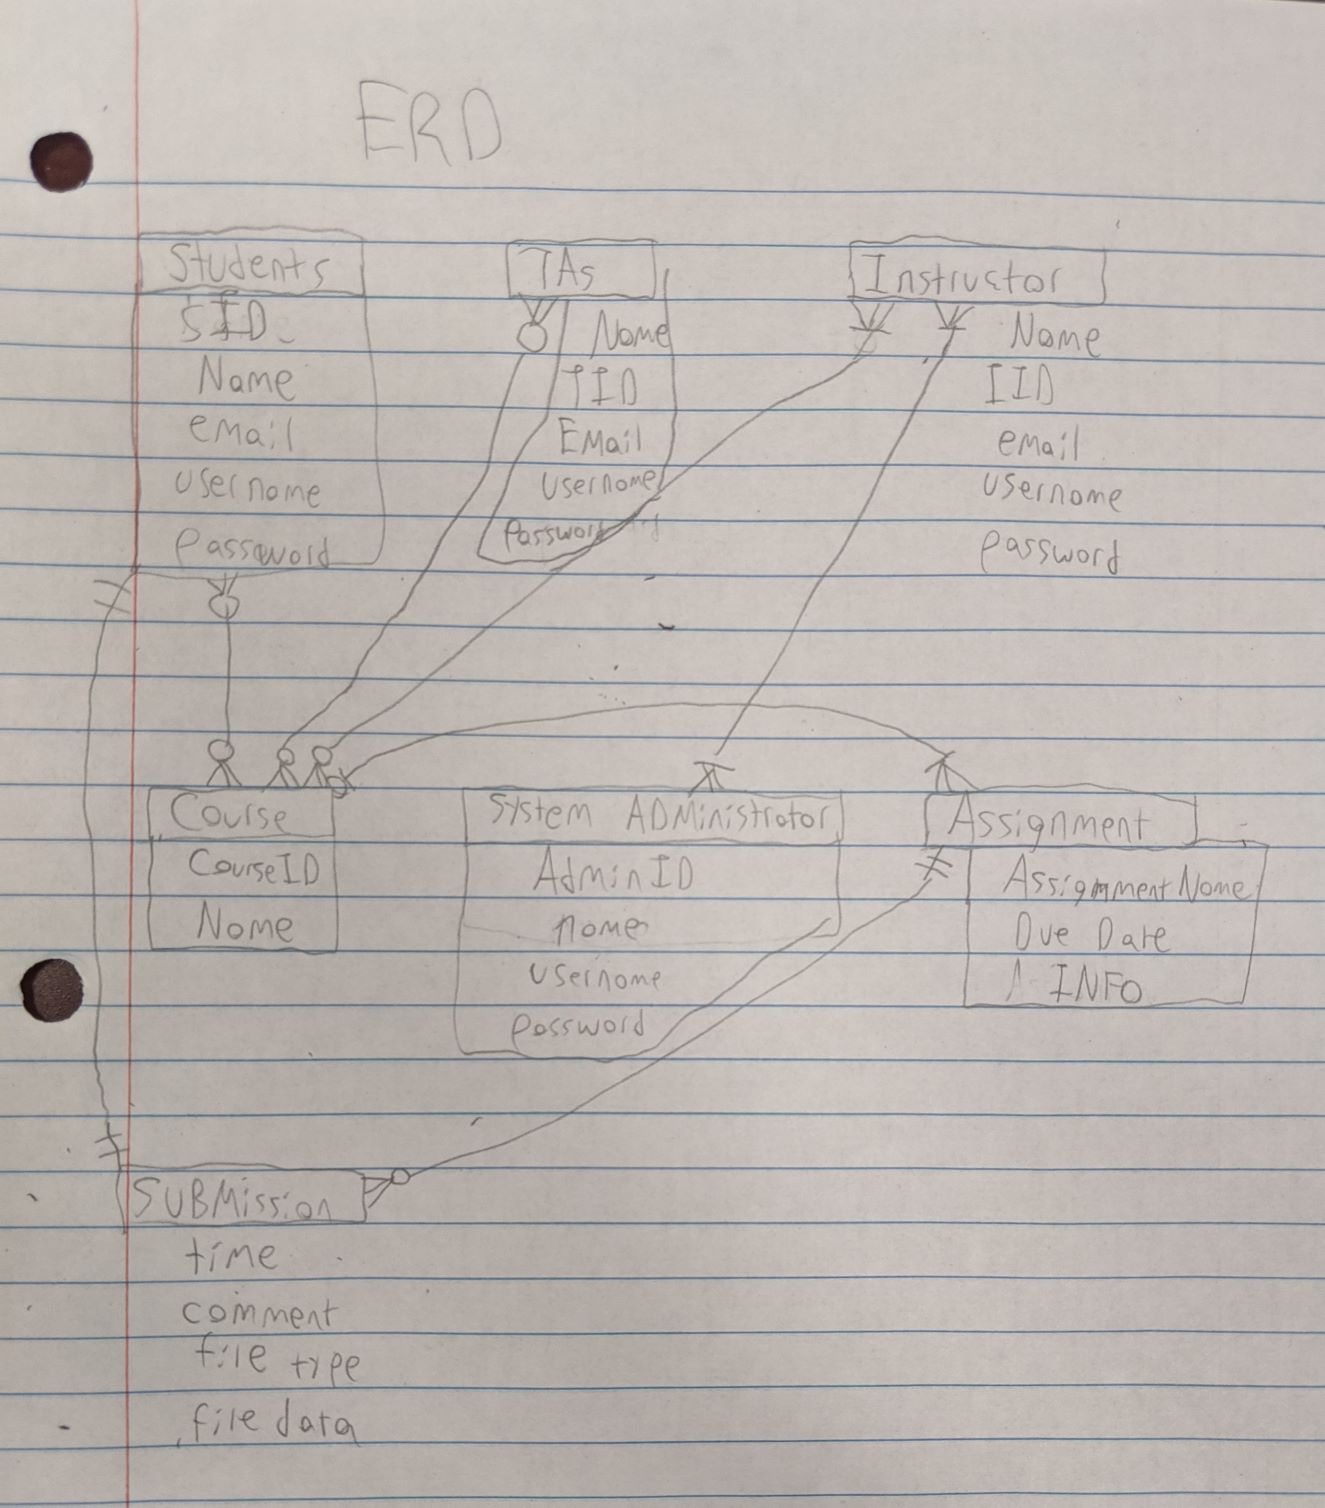 ERD
Students
SID
Name
email
username
password
TAs
Name
TID
EMail
username
Password
Instructor
Name
IID
email
username
password
Course
CourseID
Name
System ADMinistrator
AdminID
name
username
password
Assignment
Assignment Name
Due Date
INFO
SUBMission
time
comment
file type
file data